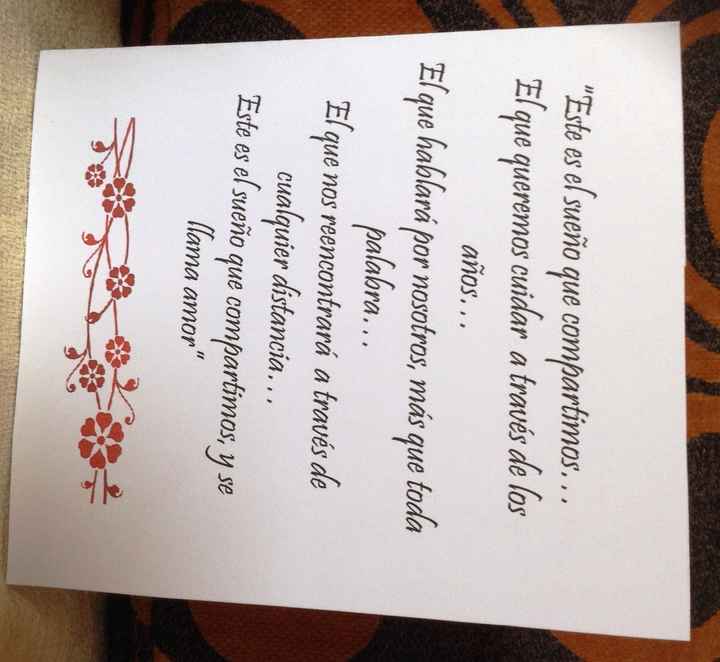 "Este es el sueño que compartimos...
El que queremos cuidar a través de los
años...
El que hablará por nosotros, más que toda
palabra...
El que nos reencontrará a través de
cualquier distancia...
Este es el sueño que compartimos, y se
llama amor"